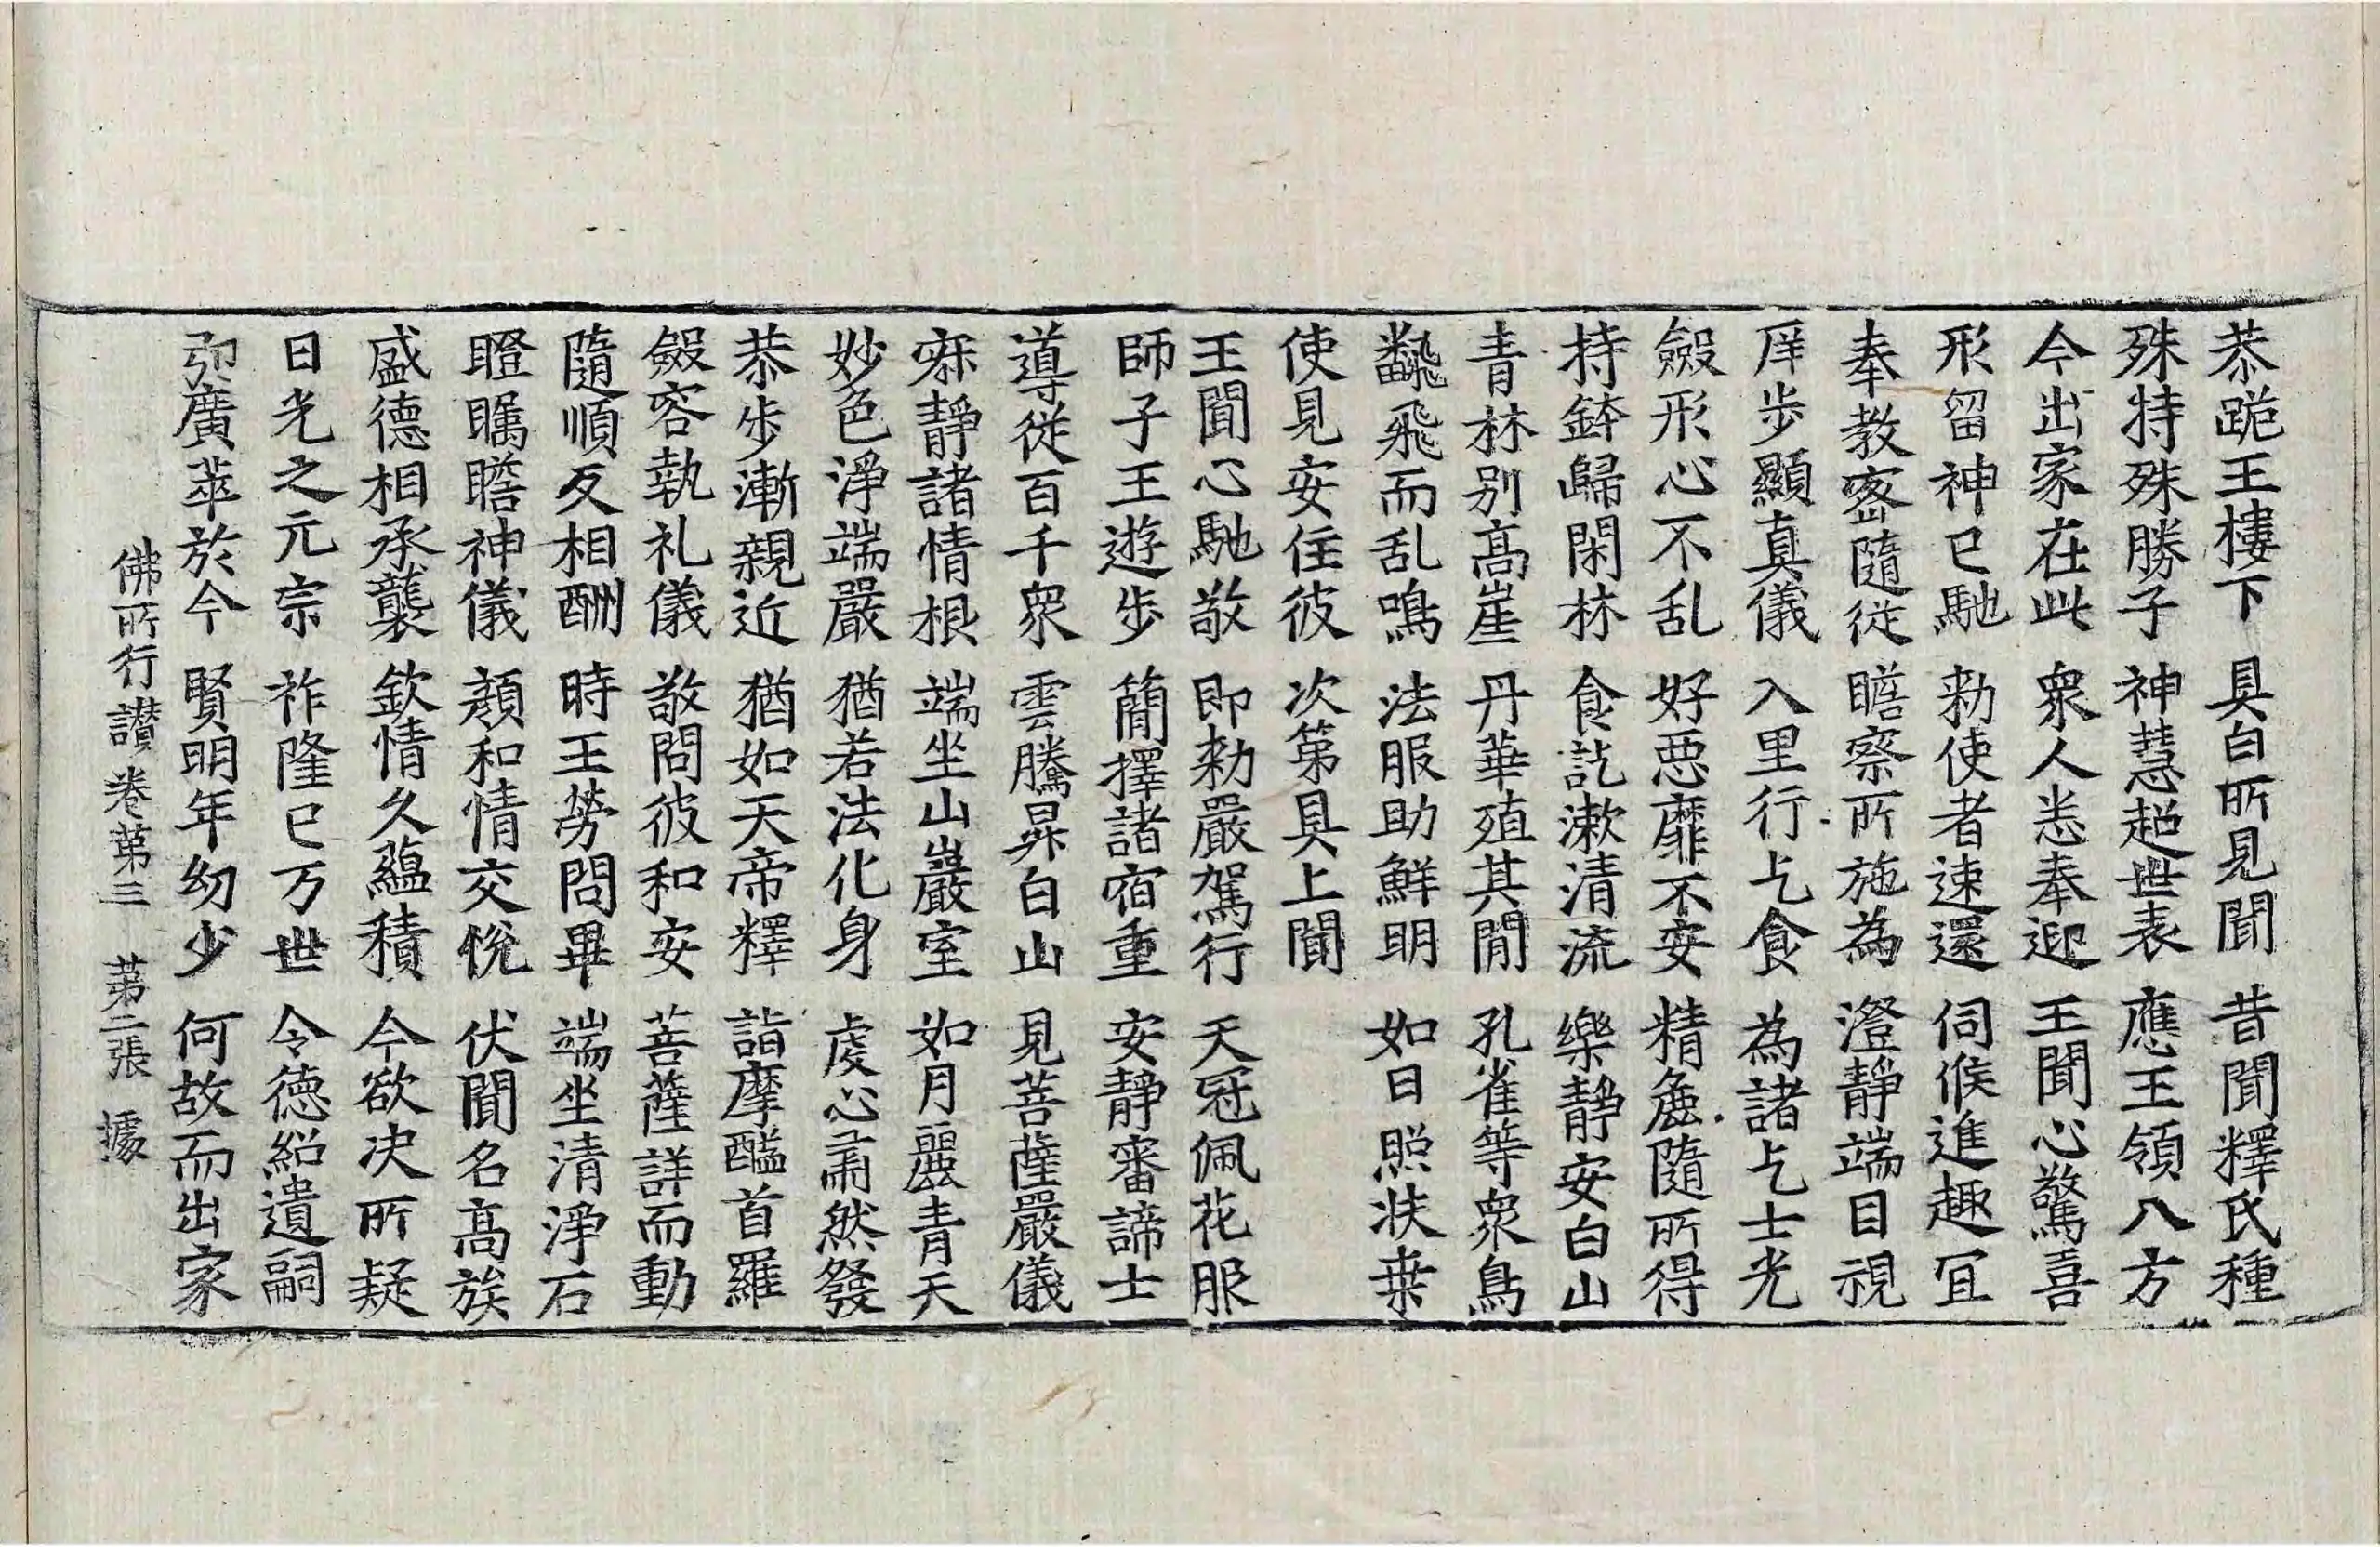 恭跪王樓下 具白所見聞 昔聞釋氏種
殊特殊勝子 神慧超世表 應王領八方
今出家在此 衆人悉奉迎 王聞心驚喜
形留神已馳 勑使者速還 伺候進趣冝
奉教密隨從 瞻察所施為 澄靜端目視
庠步顯真儀 入里行乞食 為諸乞士光
斂形心不乱 好惡靡不安 精麁隨所得
持鉢歸閑林 食訖漱清流 樂靜安白山
青林別髙崖 丹華殖其間 孔雀等衆鳥
飜飛而乱鳴 法服助鮮明 如日照扶桒
使見安住彼 次第具上聞
王聞心馳敬 即勑嚴駕行 天冠佩花服
師子王遊步 簡擇諸宿重 安靜審諦士
導從百千衆 雲騰昇白山 見菩薩嚴儀
寂靜諸情根 端坐山巖室 如月麗青天
妙色淨端嚴 猶若法化身 虔心肅然發
恭步漸親近 猶如天帝釋 詣摩醯首羅
斂容執礼儀 敬問彼和安 菩薩詳而動
隨順反相酬 時王勞問畢 端坐清淨石
瞪矚瞻神儀 顏和情交悅 伏聞名髙族
盛德相承襲 欽情久蘊積 今欲决所疑
日光之元宗 祚隆已万世 令德紹遺嗣
弘廣萃於今 賢明年幼少 何故而出家
佛所行讃卷第三 第二張 據